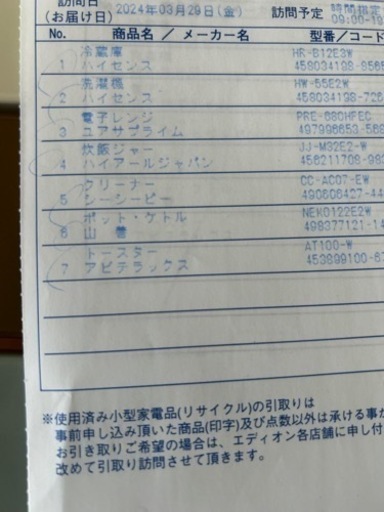 訪問日
(お届け日) 2024年03月29日(金) 訪問予定 時間指定
09:00-19
No. 商品名 ／ メーカー名 型番／コード
冷蔵庫 HR-B12E3W
1 ハイセンス 458034198-8565
洗濯機 HW-55E2W
2 ハイセンス 458034198-726
電子レンジ PRE-680HFEC
3 ユアサプライム 497996653-568
炊飯ジャー JJ-M32E2-W
4 ハイアールジャパン 456211708-983
クリーナー CC-AC07-EW
5 シーシーピー 490606427-44
ポット・ケトル NEK0122E2W
6 山善 498377121-14
トースター AT100-W
7 アビテラックス 453899100-67
※使用済み小型家電品(リサイクル)の引取りは
事前申し込み頂いた商品(印字)及び点数以外は承ける事が
お引き取りご希望の場合は、エディオン各店舗に申し付
改めて引取り訪問させて頂きます。